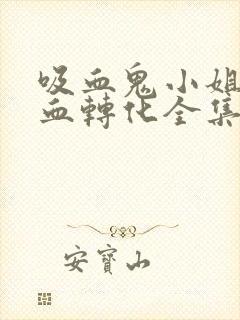 吸血鬼小姐
血轉化全集
安寶山